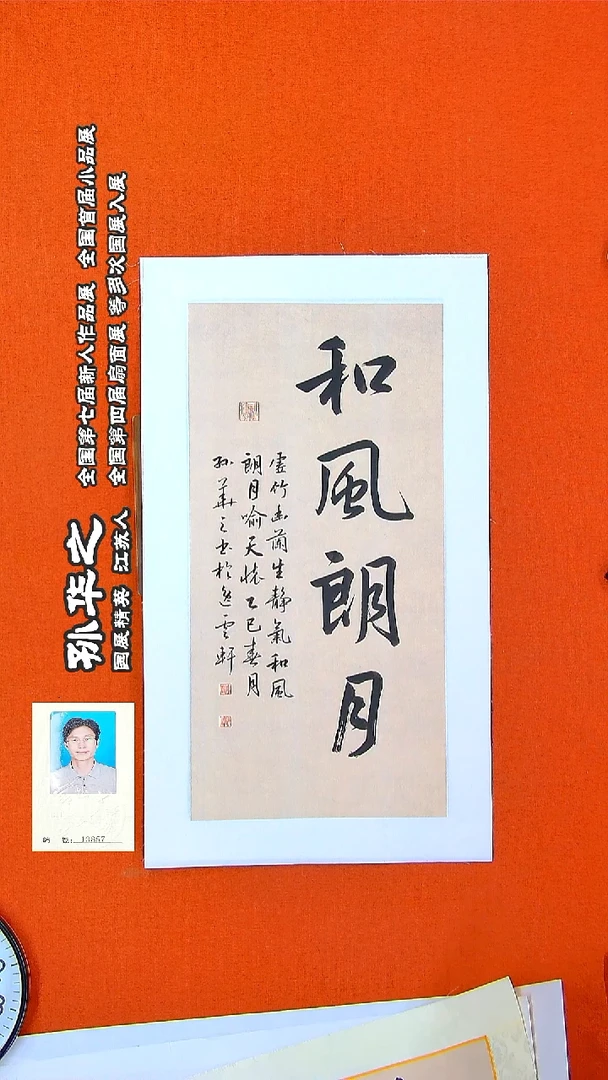 和風朗月
虚竹幽蘭生静氣和風
朗月喻天懷乙巳春月
孙華之书於逸雲軒
孙华之
国展精英 江苏人
全国第七届新人作品展 全国首届小品展
全国第四届扇面展 等多次国展入展
13857